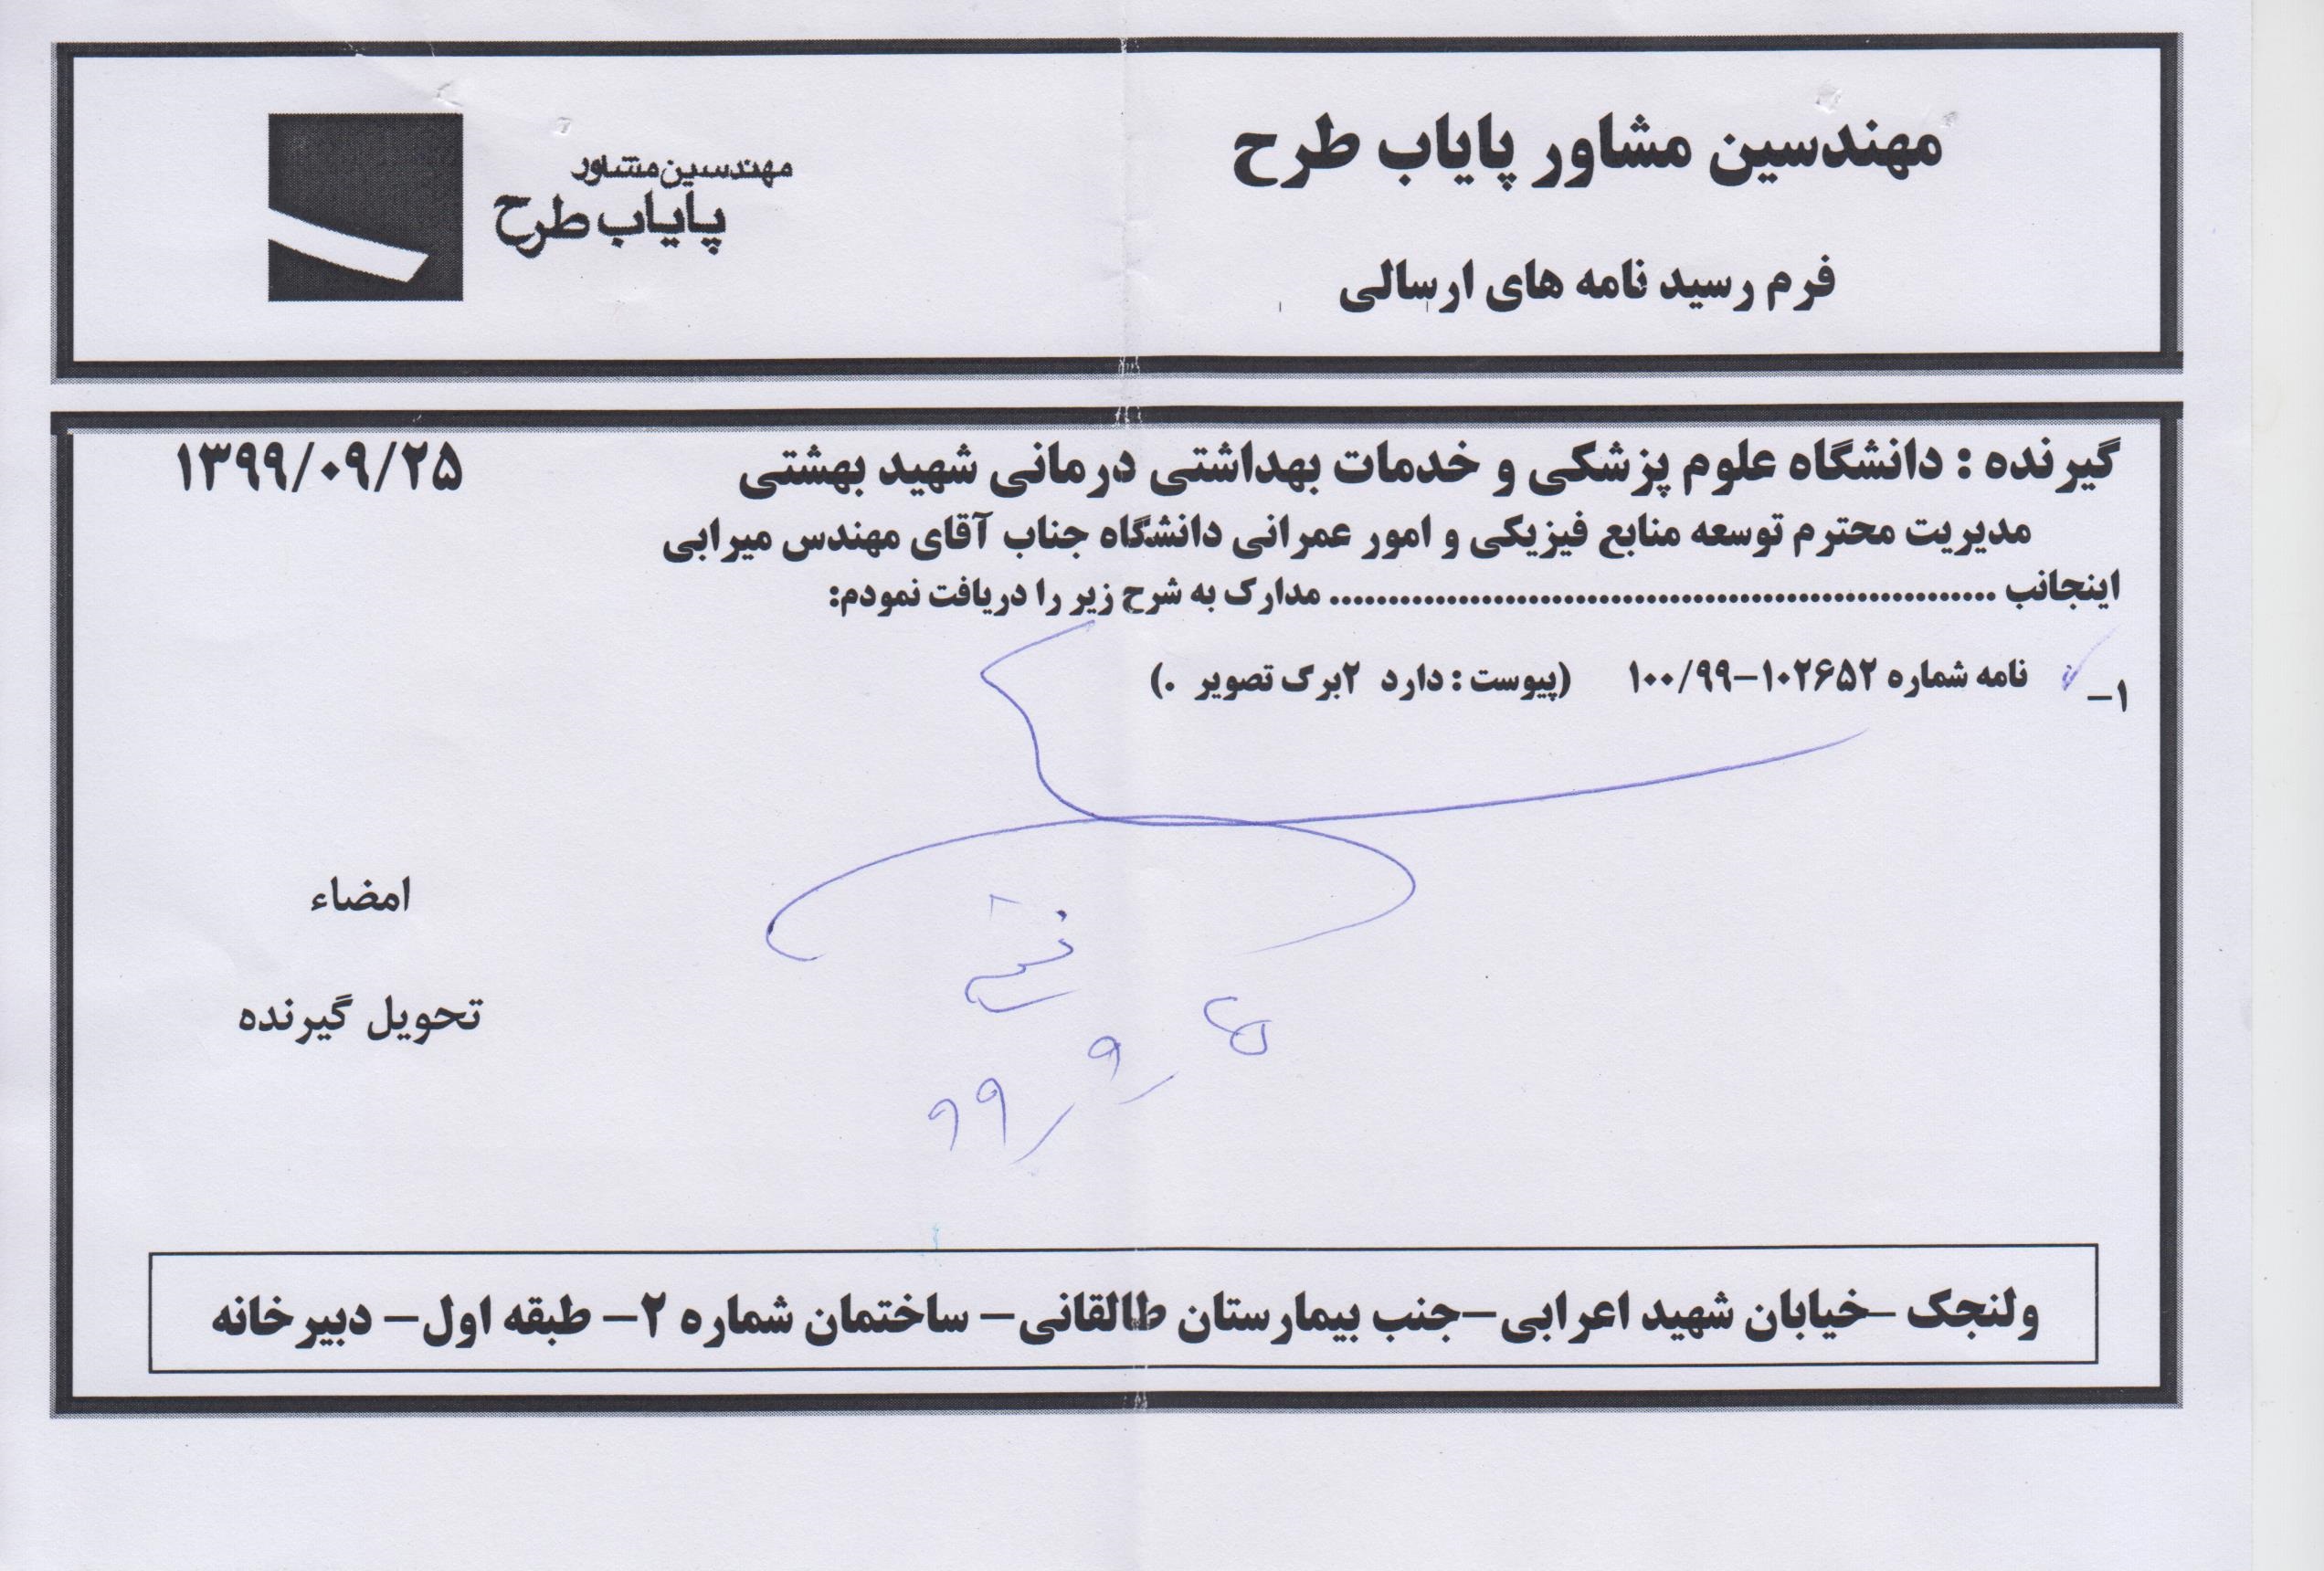 مهندسین مشاور پایاب طرح
فرم رسید نامه های ارسالی
مهندسین مشاور
پایاب طرح
گیرنده : دانشگاه علوم پزشکی و خدمات بهداشتی درمانی شهید بهشتی
۱۳۹۹/۰۹/۲۵
مدیریت محترم توسعه منابع فیزیکی و امور عمرانی دانشگاه جناب آقای مهندس میرابی
اینجانب ........................................................ مدارک به شرح زیر را دریافت نمودم:
۱- نامه شماره ۱۰۲۶۵۲-۱۰۰/۹۹ (پیوست : دارد ۲برگ تصویر .)
امضاء
تحویل گیرنده
۲۵/۹/۹۹
ولنجک -خیابان شهید اعرابی-جنب بیمارستان طالقانی- ساختمان شماره ۲- طبقه اول- دبیرخانه